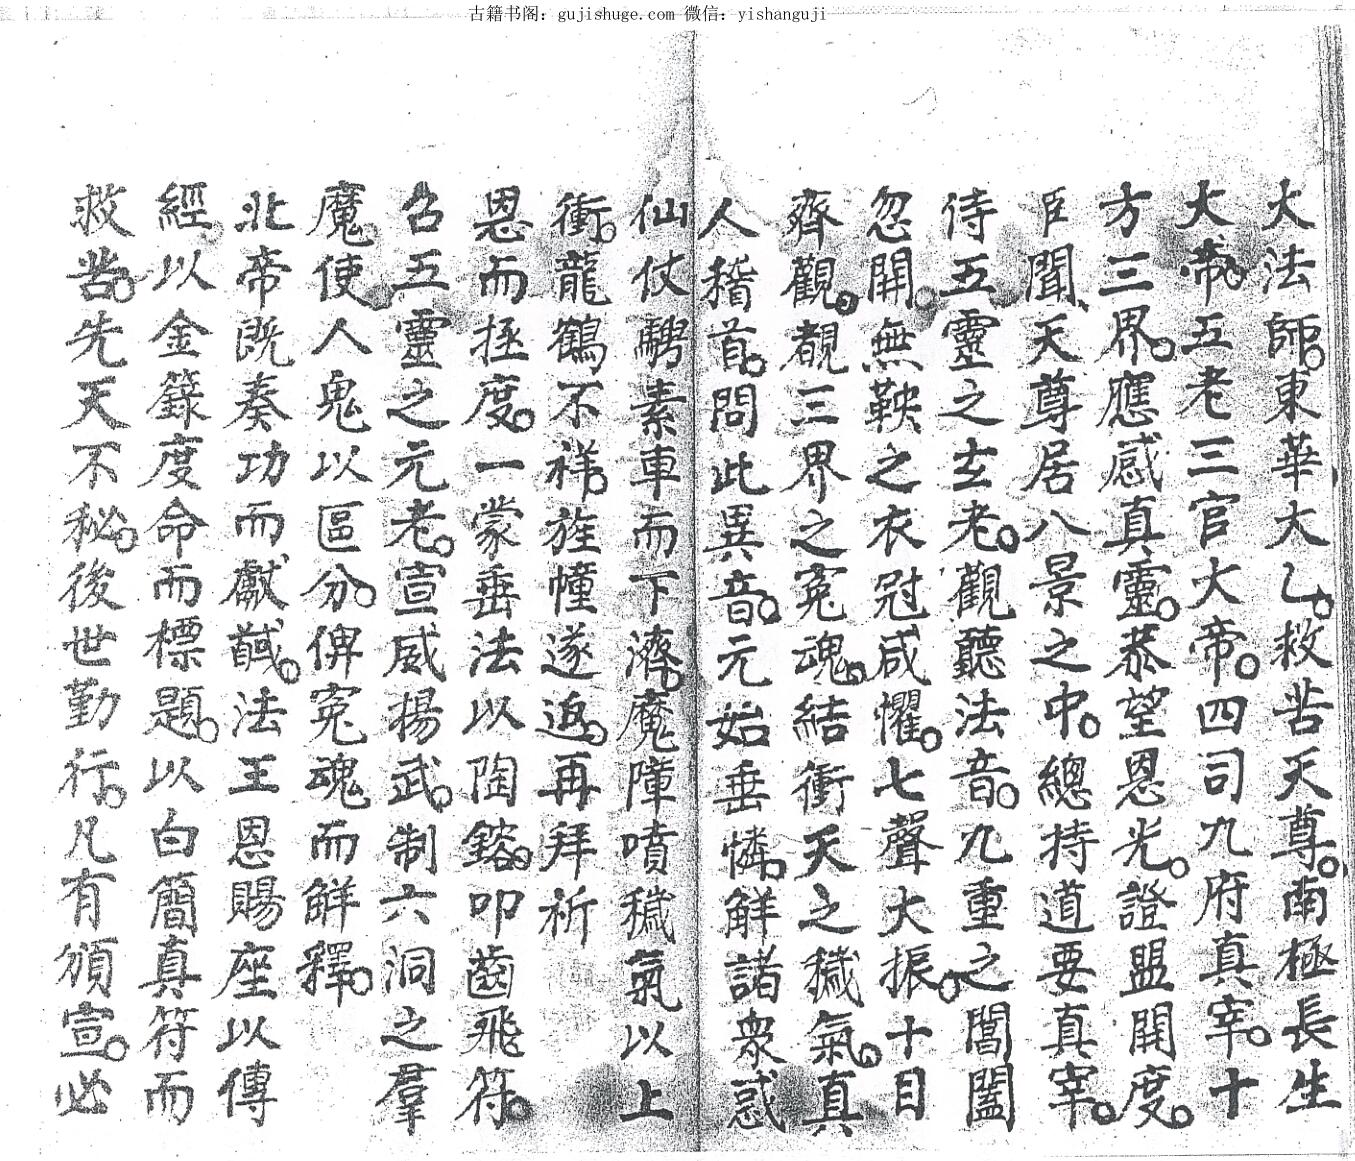 古籍书阁：gujishuge.com 微信：yishanguji
大法師。東華大乙。救苦天尊。南極長生
大帝。五老三官大帝。四司九府真宰。十
方三界。應感真靈。恭望恩光。證盟開度。
臣聞、天尊居八景之中。總持道要真宰。
侍五靈之玄老。觀聽法音。九重之閶闔
忽開。無鞅之衣冠咸懼。七聲大振。十目
齊觀。覩三界之冤魂。結衝天之穢氣。真
人稽首。問此異音。元始垂憐。解諸衆惑
仙仗騁素車而下濟。魔障噴穢氣以上
衝。龍鶴不祥。旌幢遂返。再拜祈
恩而拯度。一蒙垂法以陶鎔。叩齒飛符。
召五靈之元老。宣威揚武。制六洞之羣
魔。使人鬼以區分。俾冤魂而解釋。
北帝既奏功而獻馘。法王恩賜座以傳
經以金籙度命而標題。以白簡真符而
救苦。先天不秘。後世勤行。凡有頒宣。必